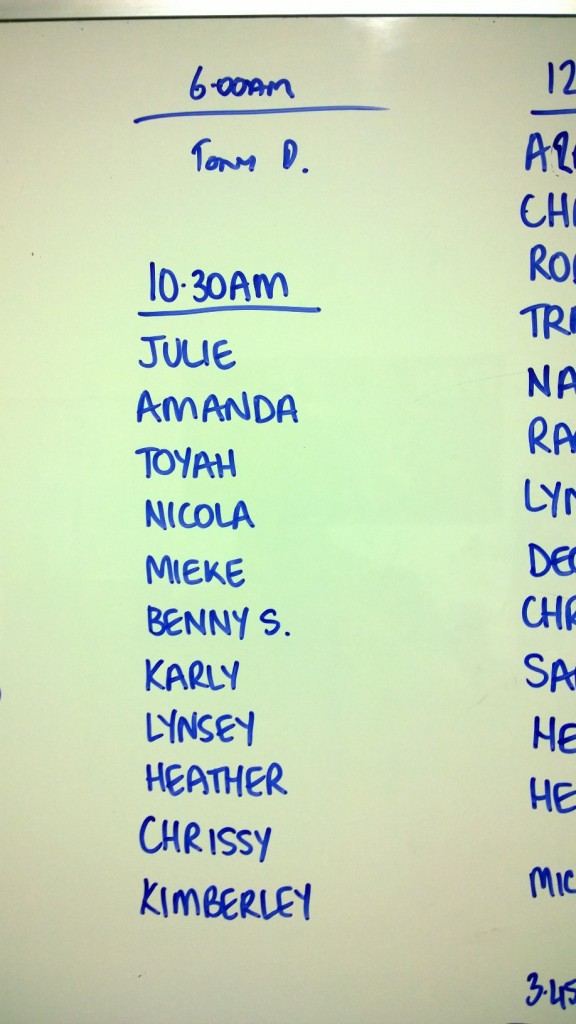 6.00AM
Tony D.
10.30AM
JULIE
AMANDA
TOYAH
NICOLA
MIEKE
BENNY S.
KARLY
LYNSEY
HEATHER
CHRISSY
KIMBERLEY
12
CH
RO
TR
NA
RA
LYN
DE
CHR
SA
HE
HE
MIC
3.45